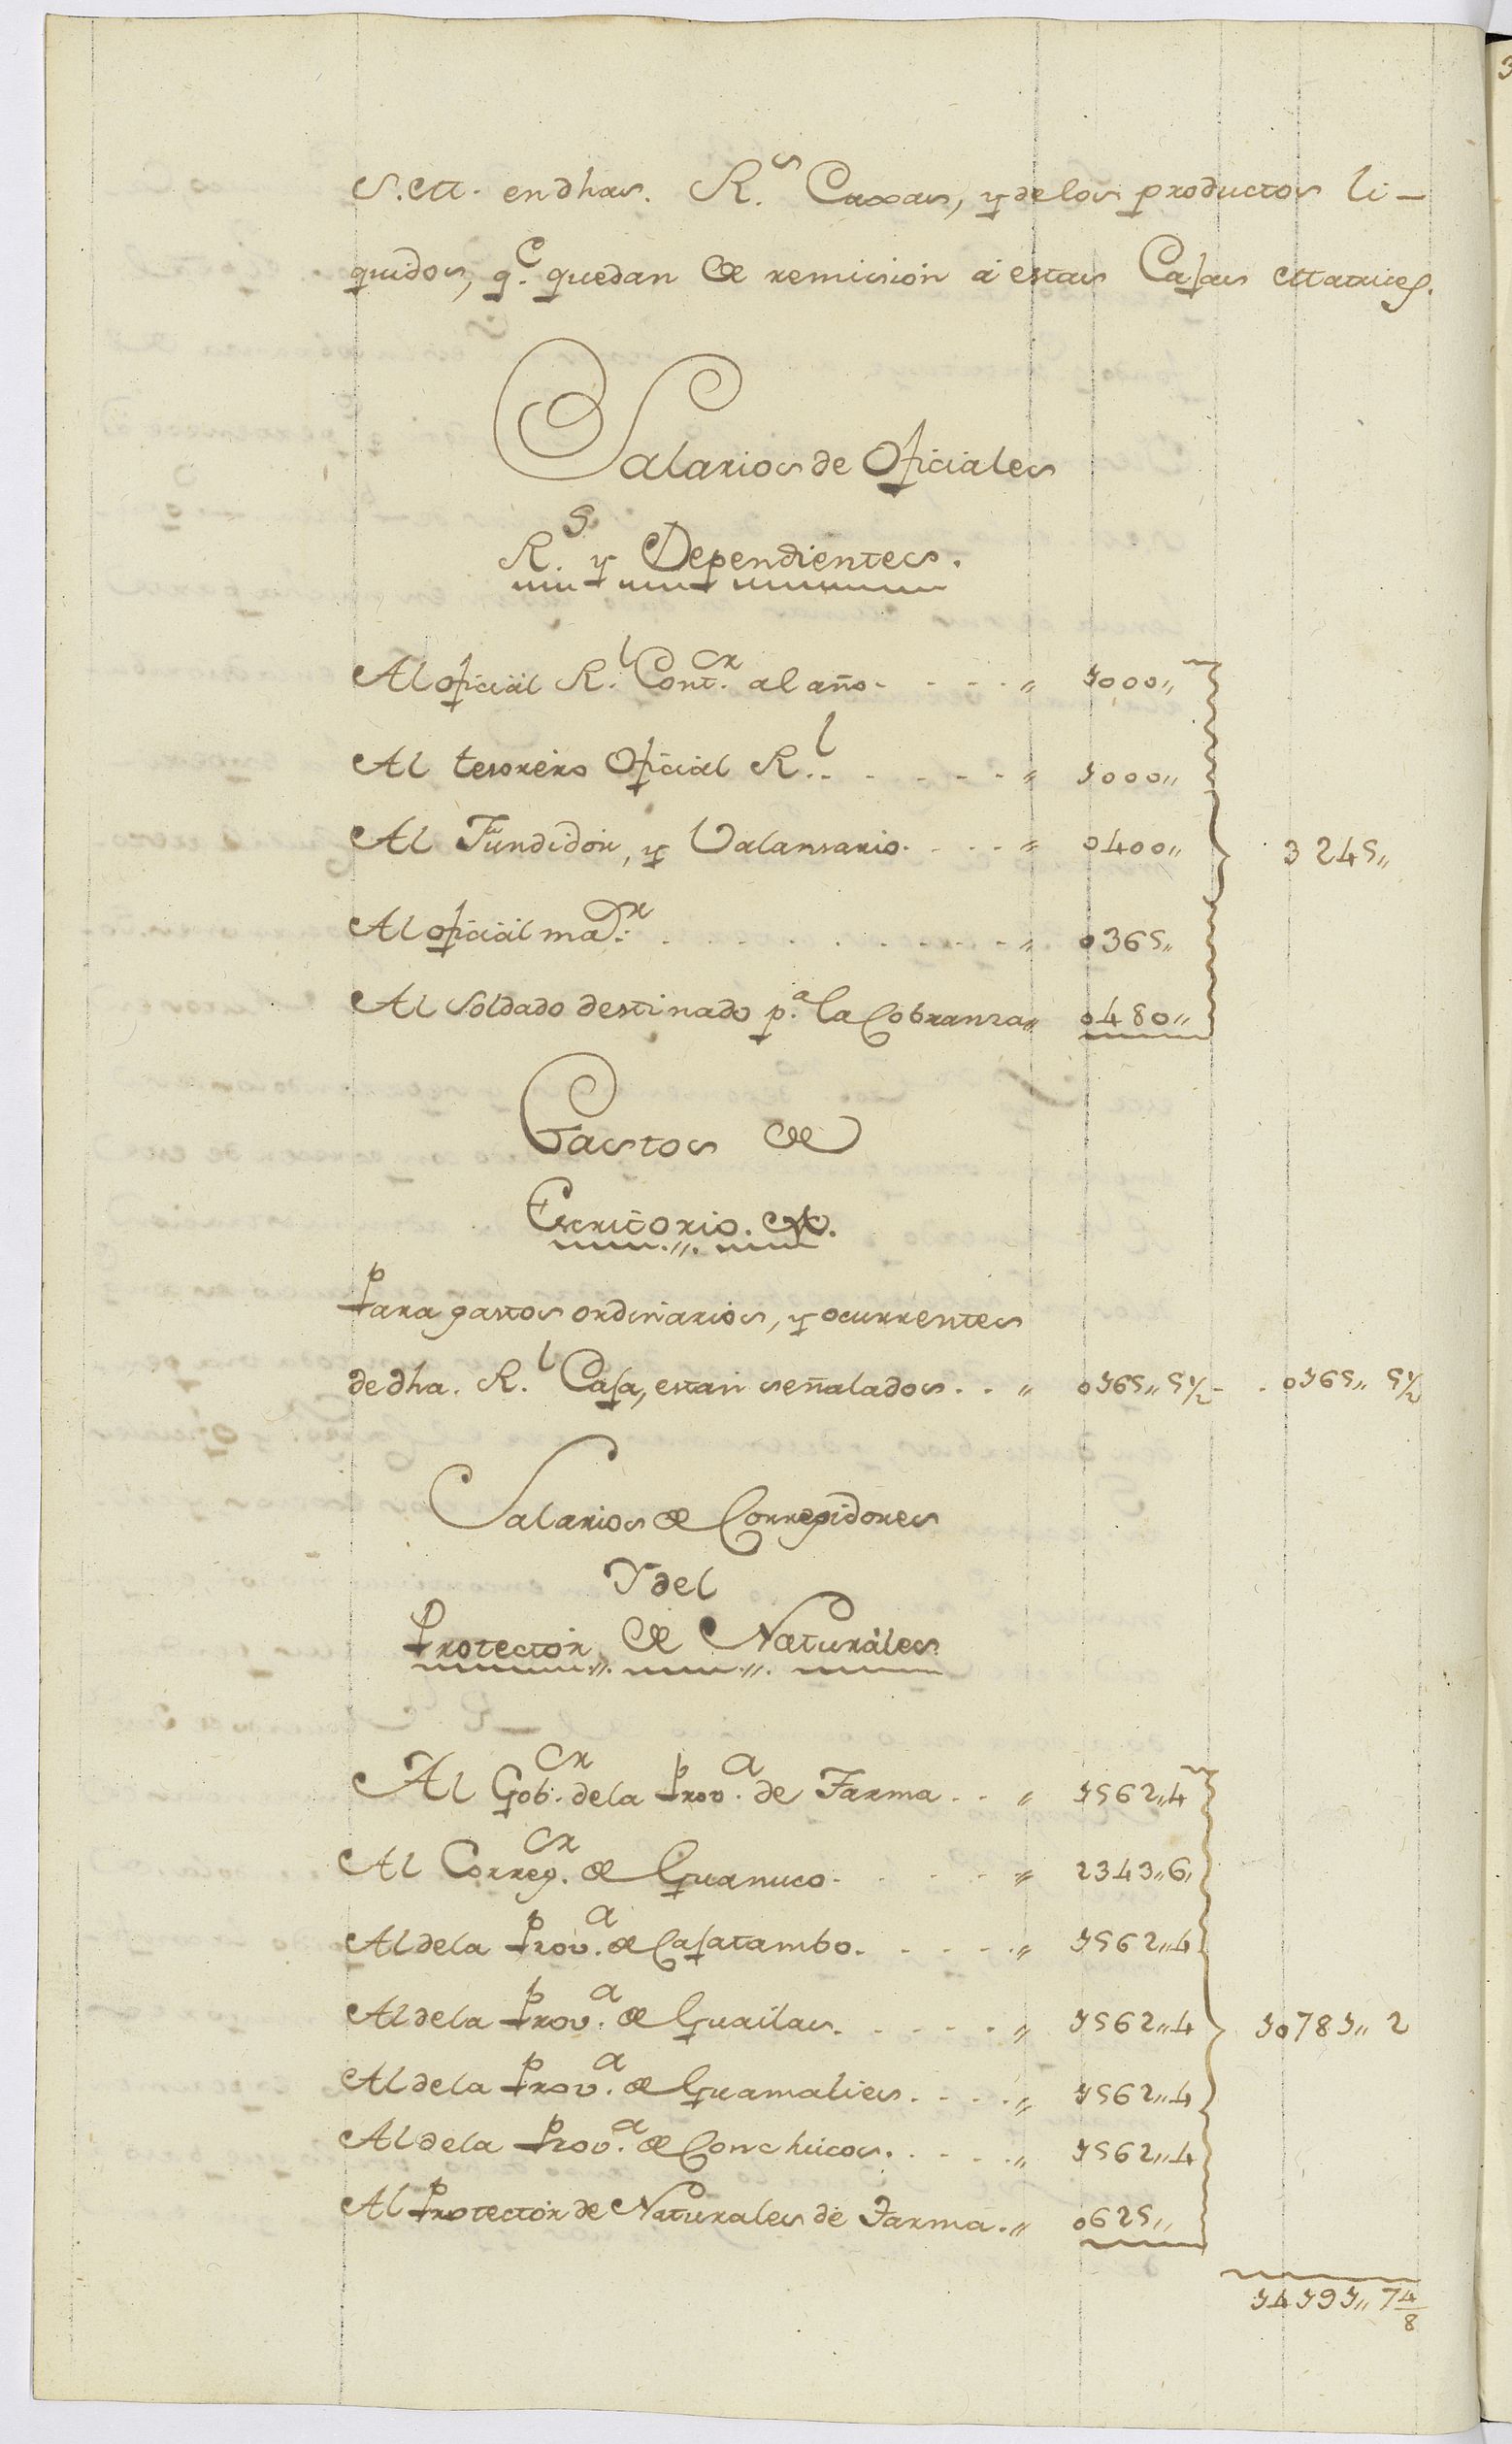 S.M. en dhas. R.s Caxas, y de los productos li-
quidos, q.e quedan de remision á estas Casas Matrices.
Salarios de Oficiales
R.s y Dependientes.
Al oficial R.l Cont.or al año - - - - " 1000"
Al tesorero Oficial R.l - - - - - - " 1000"
Al Fundidor, y Valansario - - - - " 0400" 3245"
Al oficial ma.or - - - - - - - - - " 0365"
Al Soldado destinado p.a la Cobransa " 0480"
Gastos de
Escritorio. &a.
Para gastos ordinarios, y ocurrentes
de dha. R.l Casa, estan señalados - - " 0165" 5½ - - 0165" 5½
Salarios de Corregidores
Y del
Protector de Naturales
Al Gob.or de la Prov.a de Tarma - - " 1562"4
Al Correg.or de Guanuco - - - - - " 2343"6"
Al de la Prov.a de Casatambo. - - - - " 1562"4
Al de la Prov.a de Guailas. - - - - - " 1562"4 10781" 2
Al de la Prov.a de Guamalies. - - - - " 1562"4
Al de la Prov.a de Conchucos. - - - - " 1562"4
Al Protector de Naturales de Tarma. " 0625"
14191" 7 4/8